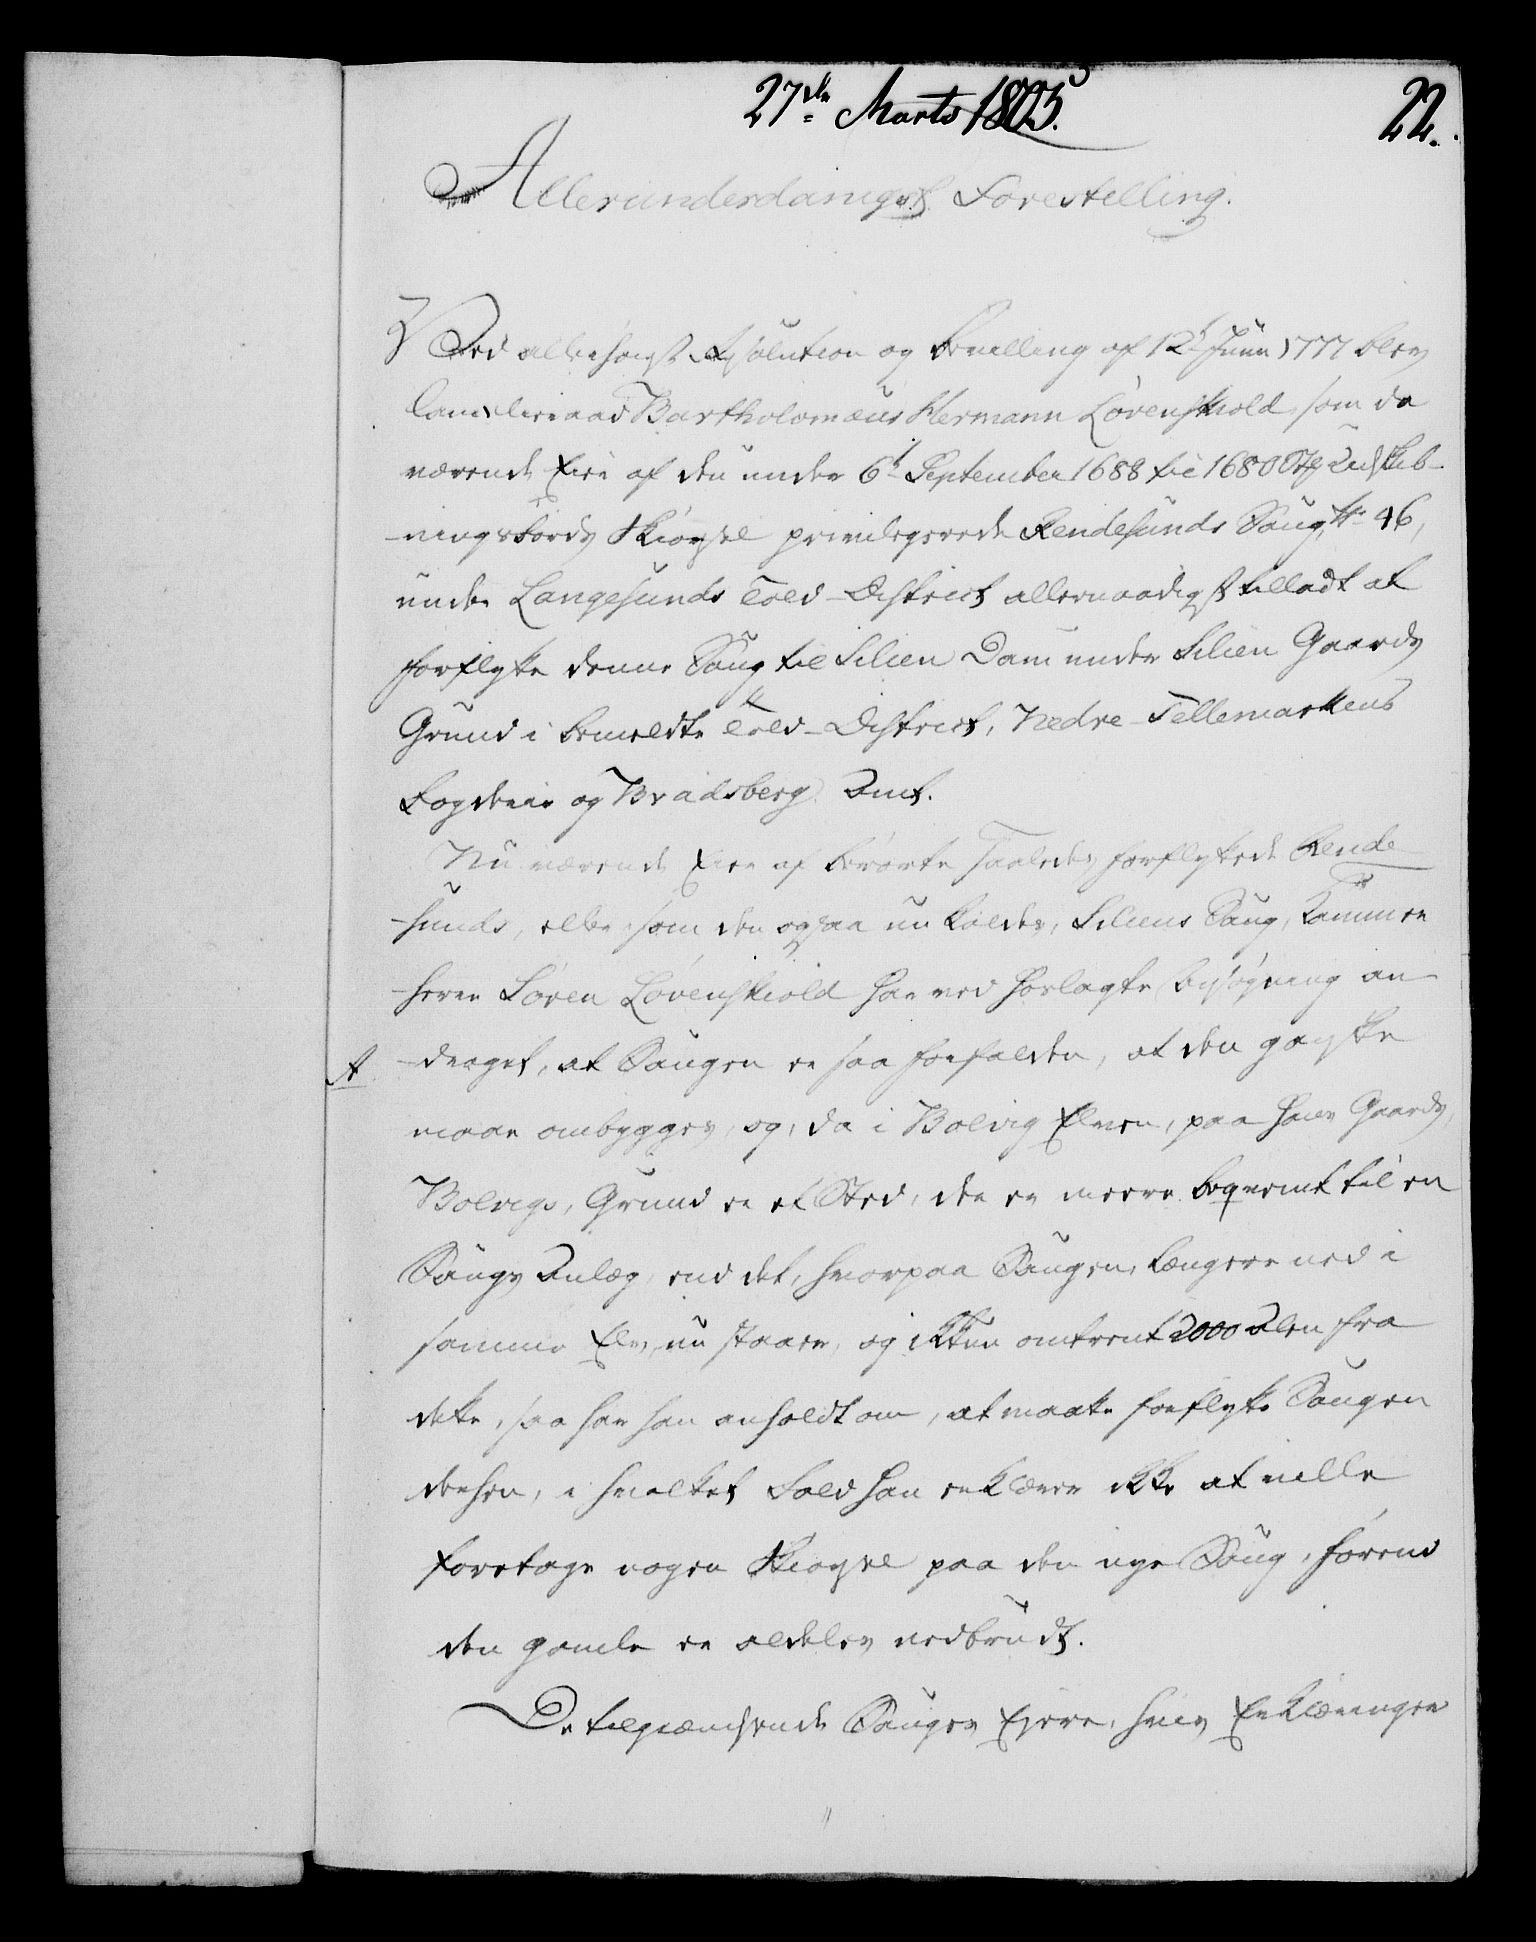 27de Marts 1805.
22.
Allerunderdanigst Forestelling.
Ved allerhøieste Resolution og Bevilling af 12t Junii 1777 blev
Cancelieraad Bartholomæus Hermann Løvenskiold, som da
værende Eier af den under 6t September 1688 til 1680 Udskib-
ningsbords Skiørsel privilegerede Rendesunds Saug, No 46,
under Langesunds Told-District allernaadigst tilladt at
forflytte denne Saug til Silien Dam under Silien Gaards
Grund i bemeldte Told-District, Nedre-Tellemarkens
Fogderie og Bradsberg Amt.
Nu værende Eier af berørte saaledes forflyttede Rende-
sunds, eller som den ogsaa nu kaldes, Siliens Saug, Kammer
herre Søren Løvenskiold har ved hoslagte Ansøgning an-
A
draget, at Saugen er saa forfalden, at den ganske
maae ombygges, og, da i Bolvig Elven, paa hans Gaards,
Bolvigs, Grund er et Sted, der er meere beqvemt til en
Saugs Anlæg, end det, hvorpaa Saugen, længere ned i
samme Elv, nu staaer, og ikkun omtrent 2000 Alen fra
dette, saa har han anholdt om, at maatte forflytte Saugen
derhen, i hvilket Fald han erklærer ikke at ville
foretage nogen Skiørsel paa den nye Saug, førend
den gamle er aldeles nedbrudt.
De tilgrændsende Saugers Eiere, hvis Erklæringer